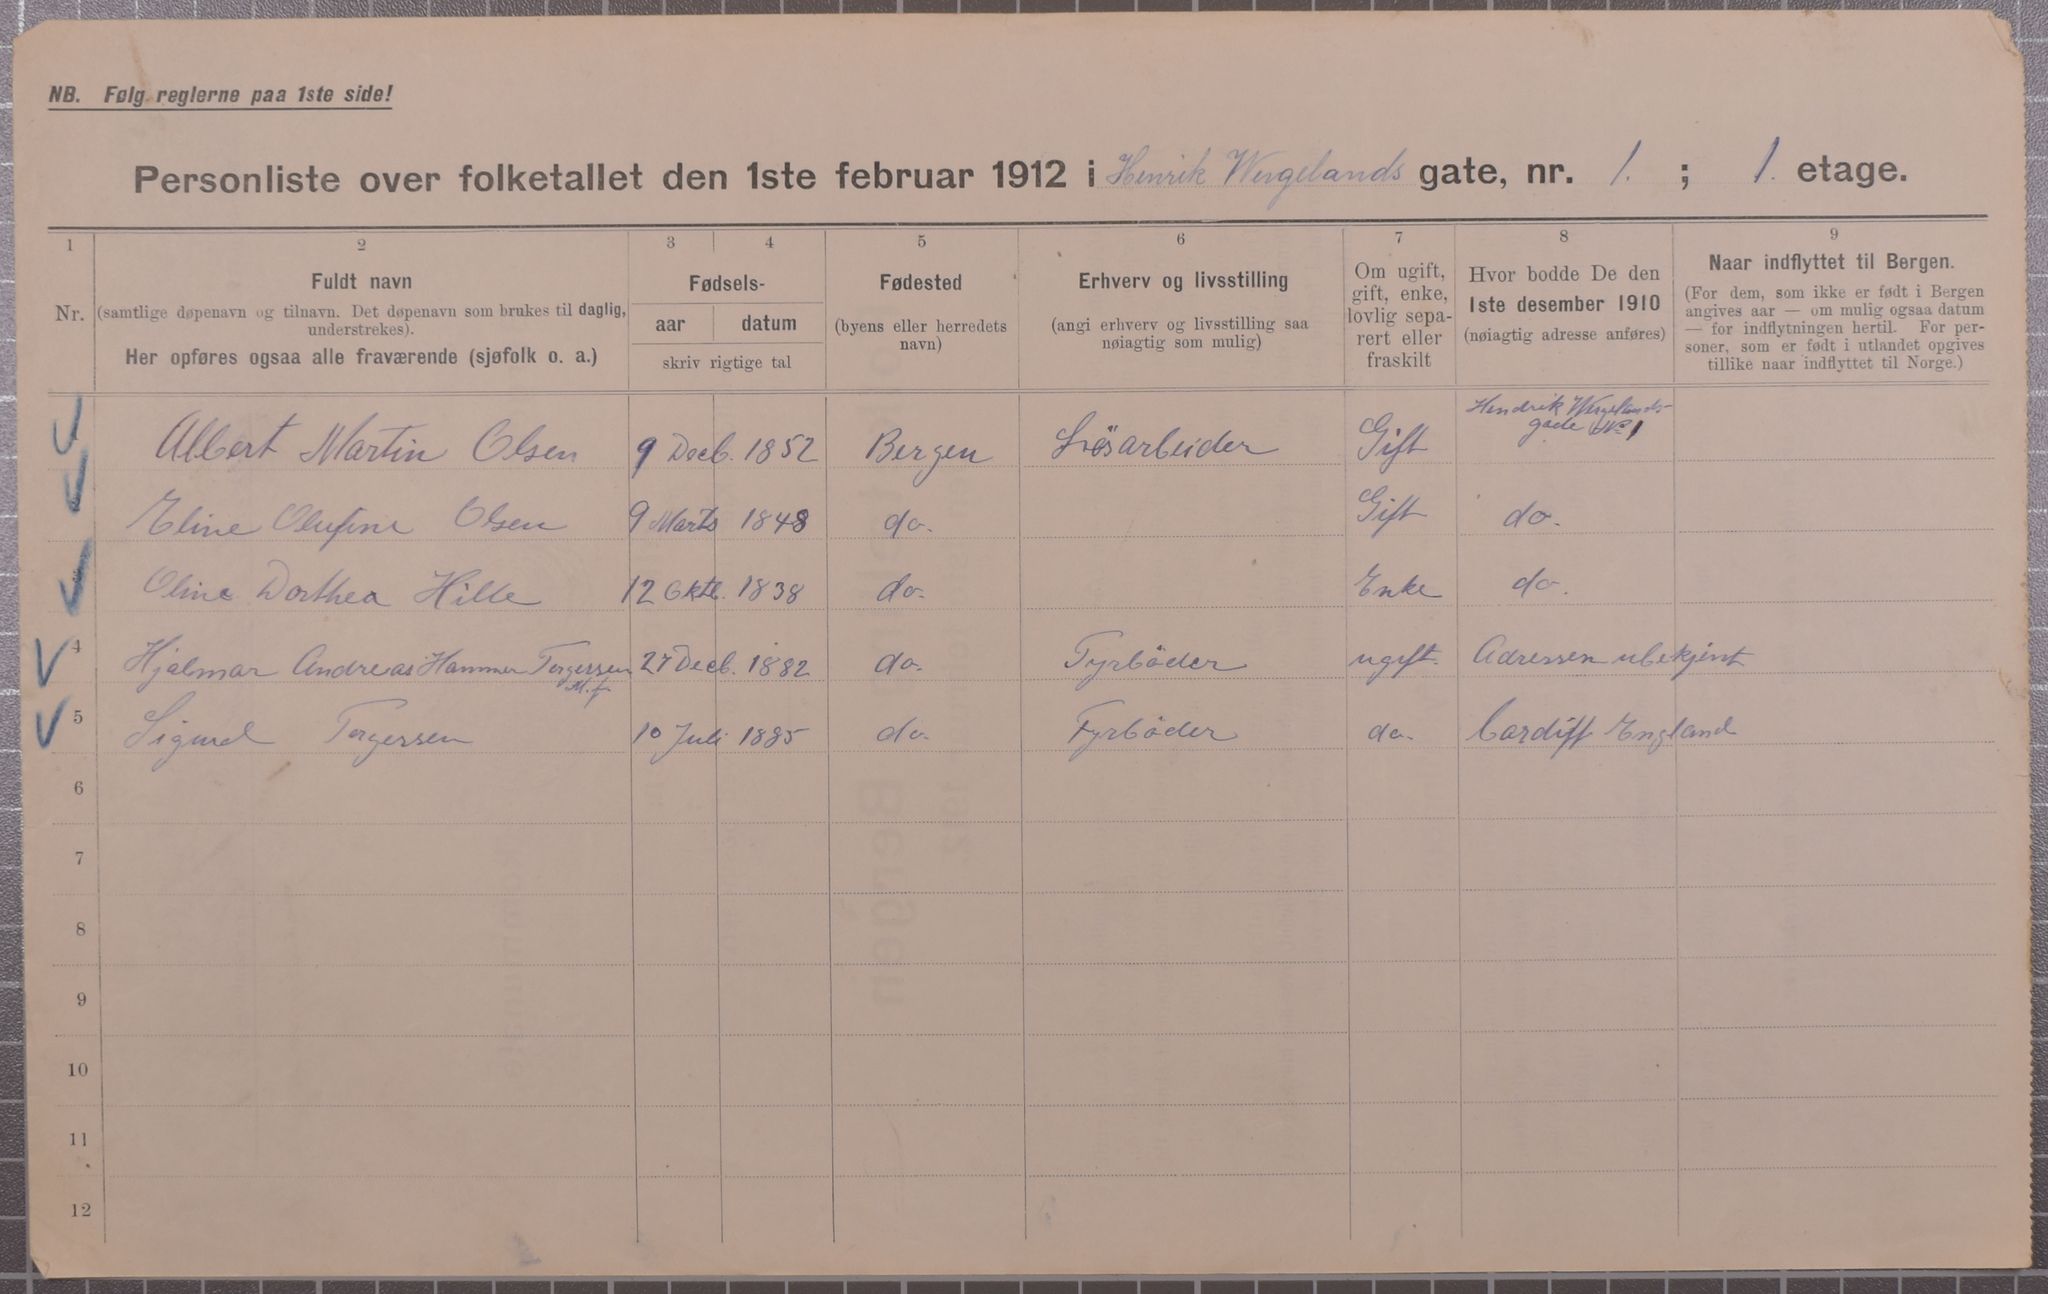 NB. Følg reglerne paa 1ste side!
Personliste over folketallet den 1ste februar 1912 i Henrik Wergelands gate, nr. 1. ; 1. etage.
1 2 3 4 5 6 7 8 9
Nr.
Fuldt navn
(samtlige døpenavn og tilnavn. Det døpenavn som brukes til daglig,
understrekes).
Her opføres ogsaa alle fraværende (sjøfolk o. a.)
Fødsels-
aar datum
skriv rigtige tal
Fødested
(byens eller herredets
navn)
Erhverv og livsstilling
(angi erhverv og livsstilling saa
nøiagtig som mulig)
Om ugift,
gift, enke,
lovlig sepa-
rert eller
fraskilt
Hvor bodde De den
1ste desember 1910
(nøiagtig adresse anføres)
Naar indflyttet til Bergen.
(For dem, som ikke er født i Bergen
angives aar — om mulig ogsaa datum
— for indflytningen hertil. For per-
soner, som er født i utlandet opgives
tillike naar indflyttet til Norge.)
Hendrik Wergelands-
gade No 1
Albert Martin Olsen 9 Decb. 1852 Bergen Lösarbeider Gift
Eline Olufine Olsen 9 Marts 1848 do. Gift do.
Oline Dorthea Hille 12 Oktb. 1838 do. Enke do.
4 Hjalmar Andreas Hammer Torgersen 27 Decb. 1882 do. Fyrböder ugift. Adressen ubekjent
5 Sigurd Torgersen 10 Juli 1885 do. Fyrböder do. Cardiff England
6
7
8
9
10
11
12